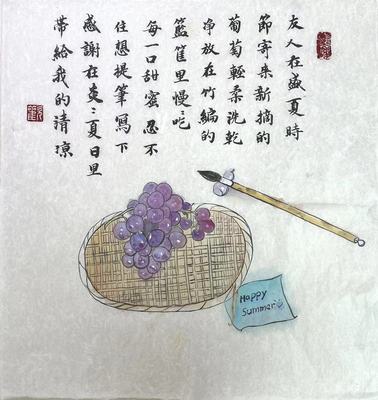 友人在盛夏時
節寄来新摘的
葡萄輕柔洗乾
净放在竹編的
籃筐里慢〻吃
每一口甜蜜忍不
住想提筆寫下
感謝在炎〻夏日里
帶給我的清凉
Happy
Summer